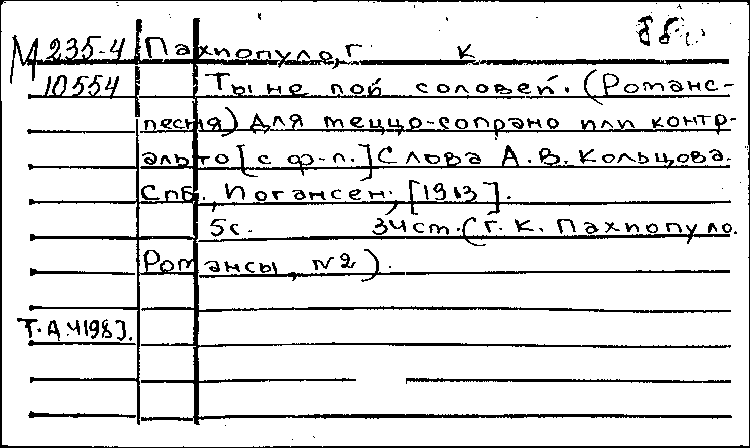 М 235-4 Пахпопуло, Г К
10554 Ты не пой соловей. (Романс-
песня) Для меццо-сопрано или контр-
альто [с ф-п.] Слова А.В. Кольцова.
Спб., Иогансен, [1913].
5с. 34 см. (Г. К. Пахпопуло.
Романсы, №2).